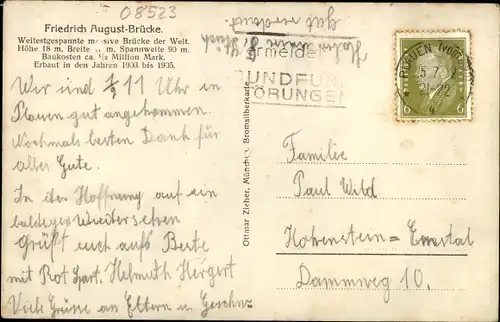 08523
Friedrich August-Brücke.
Weitestgespannte massive Brücke der Welt.
Höhe 18 m, Breite m, Spannweite 90 m.
Baukosten ca. ½ Million Mark.
Erbaut in den Jahren 1903 bis 1905.
Wir sind ½ 11 Uhr in
Plauen gut angekommen.
Nochmals besten Dank für
alles Gute.
In der Hoffnung auf ein
baldiges Wiedersehen
Grüßt euch aufs Beste
mit Rot Sport. Helmuth Hergert
Viele Grüsse an Eltern u. Geschw.
Ottmar Zieher, München, Bromsilberkarte
RUNDFUNK
STÖRUNGEN
PLAUEN (VOGTL)
21-22
6 6
Familie
Paul Wild.
Hohenstein=Ernstal
Dammweg 10.